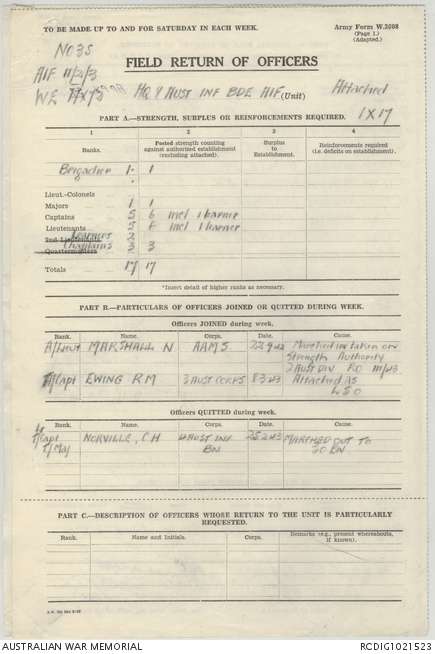 TO BE MADE UP TO AND FOR SATURDAY IN EACH WEEK.
Army Form W.3008
(Page 1.)
(Adapted.)
No 35
AIF 11/2/3
FIELD RETURN OF OFFICERS
WE
HQ 9 AUST INF BDE AIF (Unit)
Attached
1 X 17
PART A.—STRENGTH, SURPLUS OR REINFORCEMENTS REQUIRED.
1 2 3 4
Ranks. Posted strength counting against authorized establishment (excluding attached). Surplus to Establishment. Reinforcements required (i.e. deficits on establishment).
Brigadier 1. 1
Lieut.-Colonels
Majors 1 1
Captains 5 6 incl 1 learner
Lieutenants 5 incl 1 learner
2nd Lieutenants Learners 2
Quartermasters Chaplains 3 3
Totals 17 17
*Insert detail of higher ranks as necessary.
PART B.—PARTICULARS OF OFFICERS JOINED OR QUITTED DURING WEEK.
Officers JOINED during week.
Rank. Name. Corps. Date. Cause.
A/Lieut MARSHALL N AAMS Marched in taken on
Strength Authority
2 AUST DIV RO
T/Capt EWING R M 3 AUST CORPS 8 3 43 Attached as
LSO
Officers QUITTED during week.
Rank. Name. Corps. Date. Cause.
T/Capt NORVILLE, C H 4 AUST INF 25 2 43 MARCHED OUT TO
T/Maj BN 20 BN
PART C.—DESCRIPTION OF OFFICERS WHOSE RETURN TO THE UNIT IS PARTICULARLY
REQUESTED.
Rank. Name and Initials. Corps. Remarks (e.g., present whereabouts, if known).
AUSTRALIAN WAR MEMORIAL
RCDIG1021523